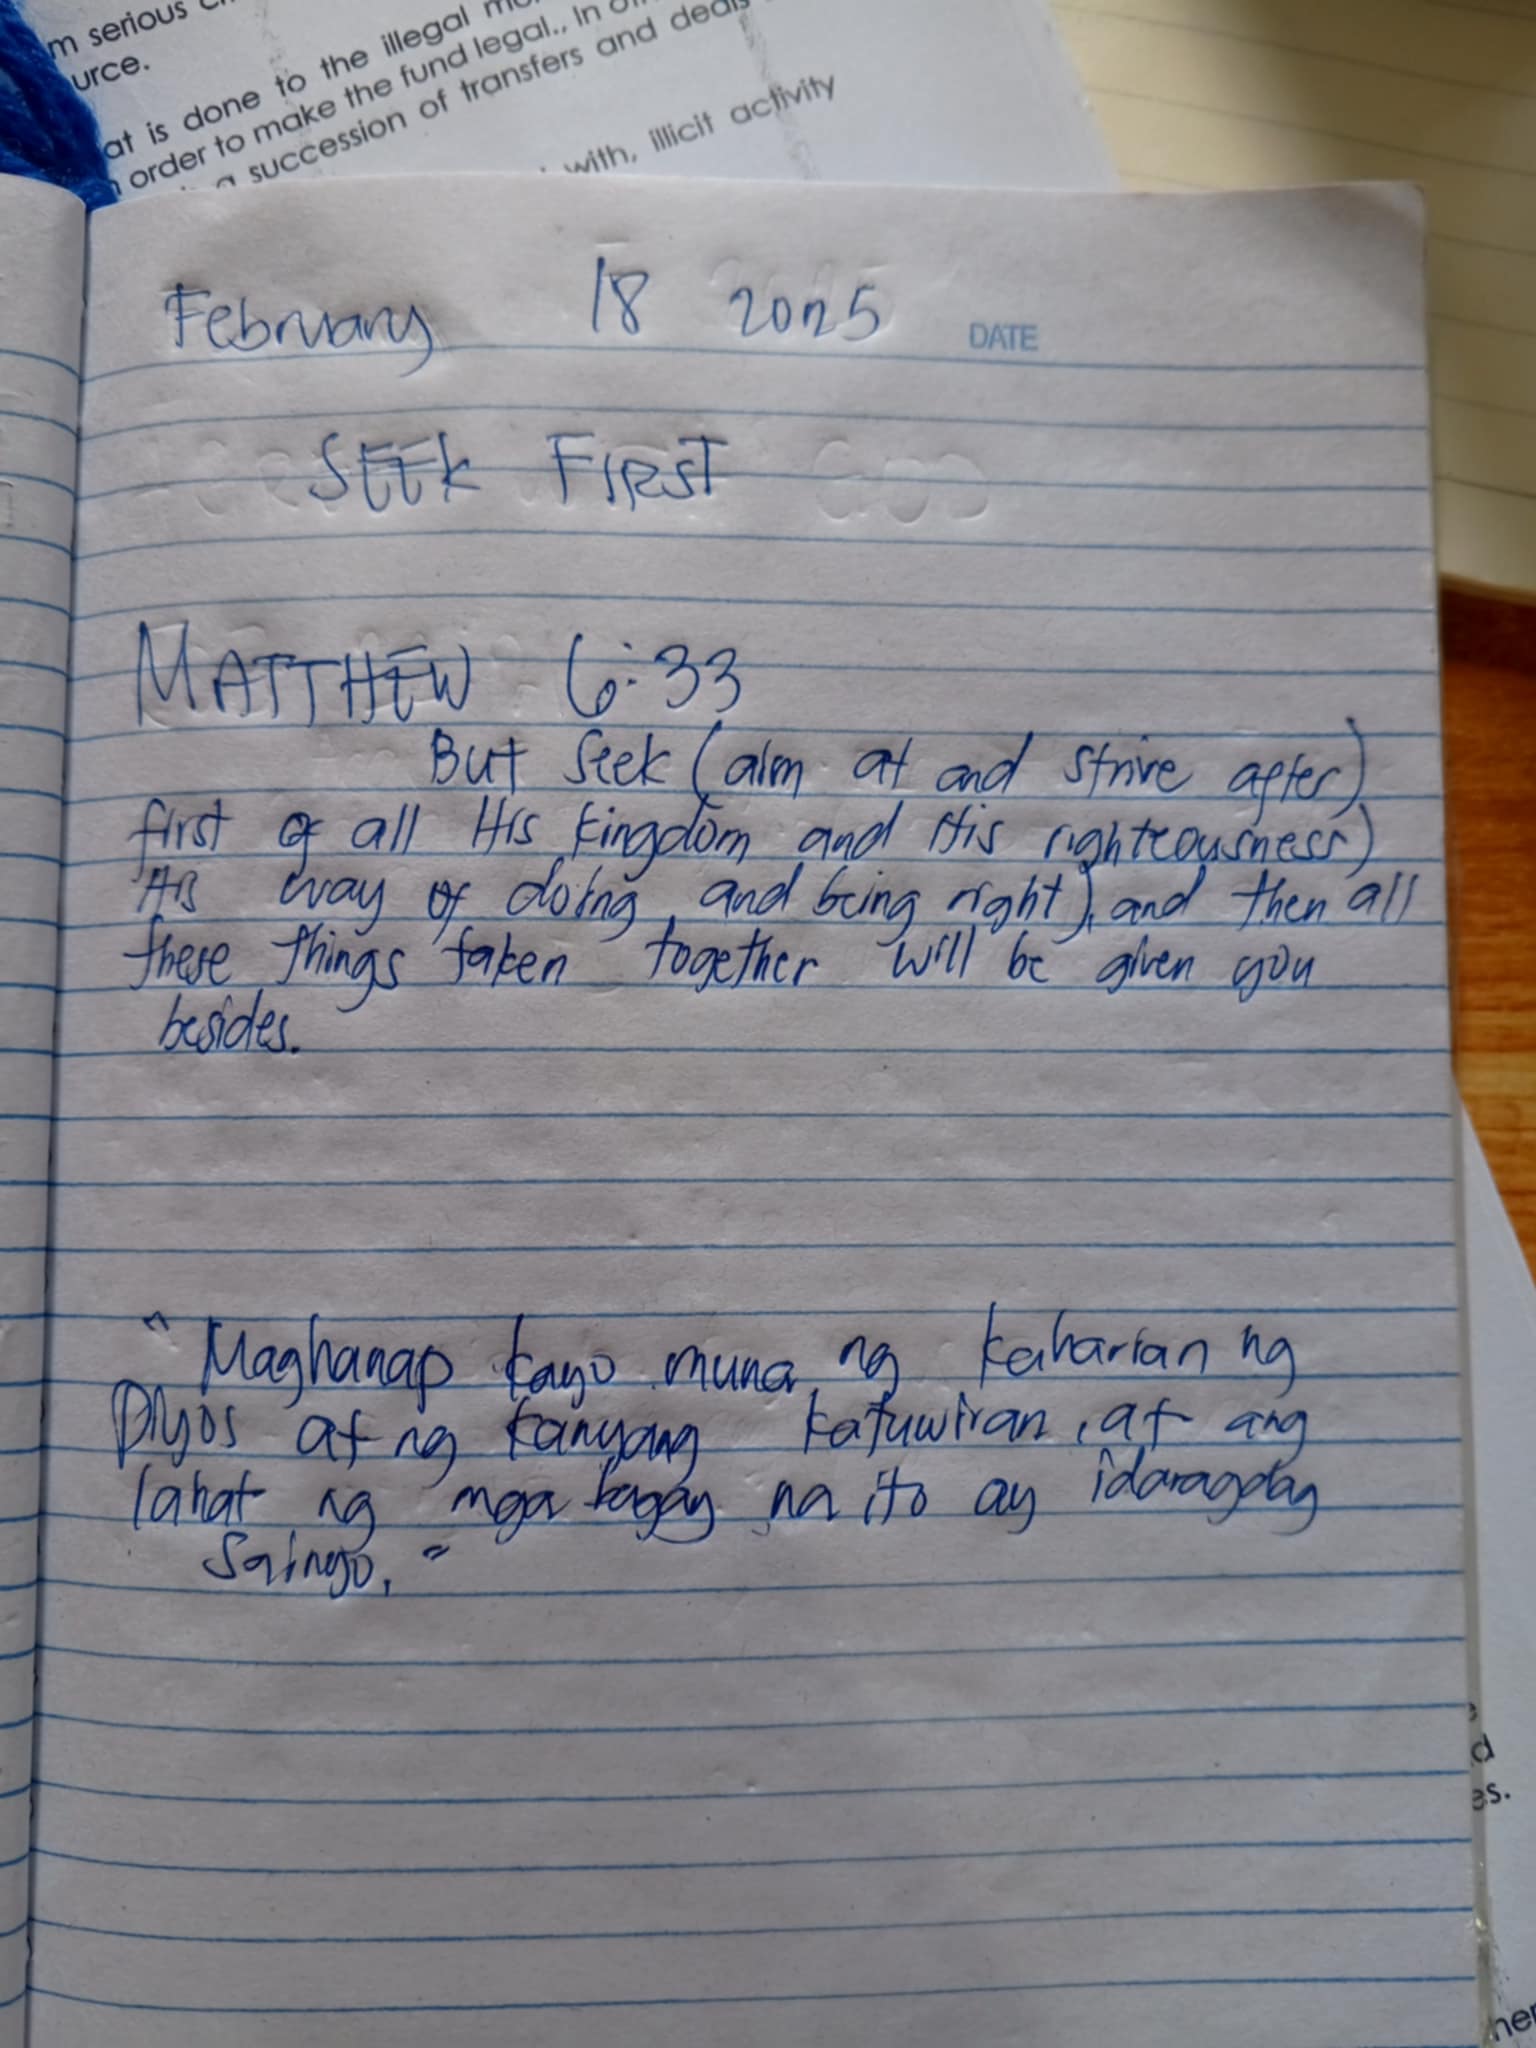 m serious
urce.
at is done to the illegal
order to make the fund legal., In
a succession of transfers and deals
with, illicit activity
February 18 2025
DATE
SEEK FIRST
MATTHEW 6:33
But seek (aim at and strive after)
first of all His kingdom and His righteousness)
His way of doing and being right), and then all
these things taken together will be given you
besides.
"Maghanap kayo muna ng kaharian ng
Diyos at ng kanyang katuwiran, at ang
lahat ng mga bagay na ito ay idaragdag
sainyo."
d
es.